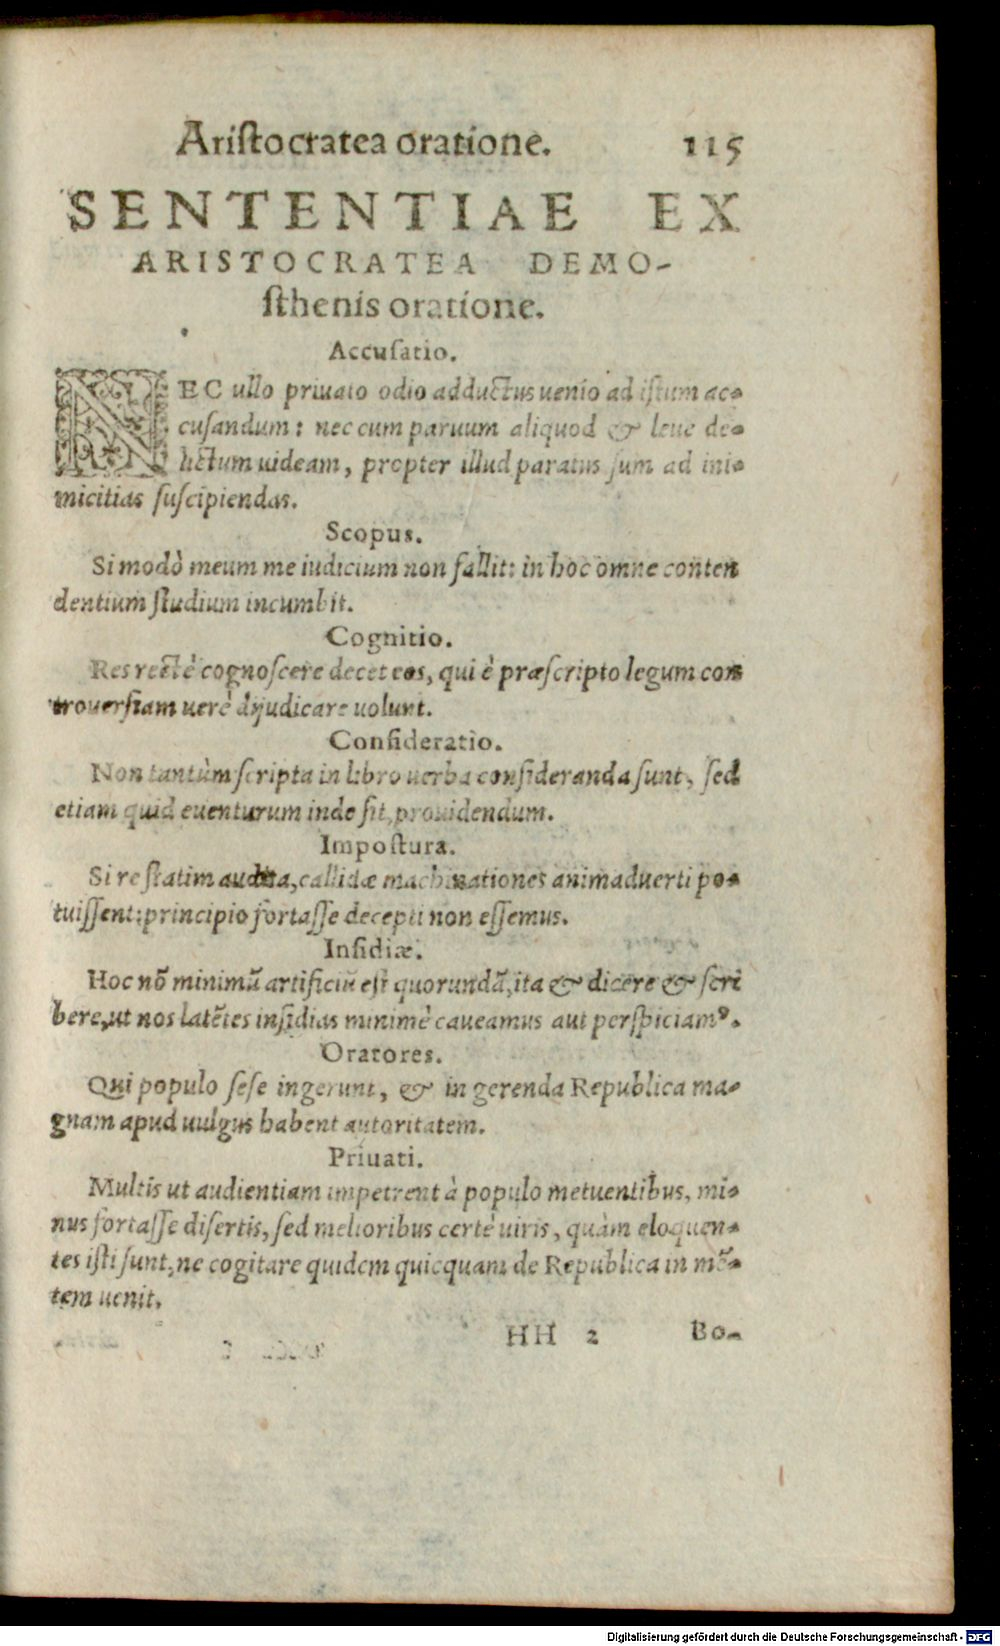 Aristocratea oratione. 115
SENTENTIAE EX
ARISTOCRATEA DEMO-
sthenis oratione.
Accusatio.
NEC ullo priuato odio adductus uenio ad istum ac-
cusandum: nec cum paruum aliquod & leue de-
lictum uideam, propter illud paratus sum ad ini-
micitias suscipiendas.
Scopus.
Si modò meum me iudicium non fallit: in hoc omne conten
dentium studium incumbit.
Cognitio.
Res rectè cognoscere decet eos, qui è præscripto legum con
trouersiam uerè dijudicare uolunt.
Consideratio.
Non tantùm scripta in libro uerba consideranda sunt, sed
etiam quid euenturum inde sit, prouidendum.
Impostura.
Si re statim audita, callidæ machinationes animaduerti po-
tuissent: principio fortasse decepti non essemus.
Insidiæ.
Hoc nō minimū artificiū est quorundā, ita & dicere & scri
bere, ut nos latētes insidias minimè caueamus aut perspiciamꝰ.
Oratores.
Qui populo sese ingerunt, & in gerenda Republica ma-
gnam apud uulgus habent autoritatem.
Priuati.
Multis ut audientiam impetrent à populo metuentibus, mi-
nus fortasse disertis, sed melioribus certè uiris, quàm eloquen-
tes isti sunt, ne cogitare quidem quicquam de Republica in mē-
tem uenit.
HH 2 Bo-
Digitalisierung gefördert durch die Deutsche Forschungsgemeinschaft - DFG